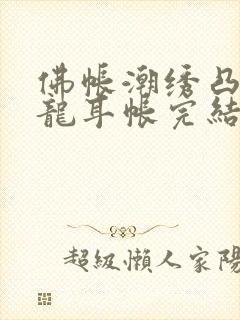 佛帐潮绣凸
龍耳帐完結
超級懶人家陽